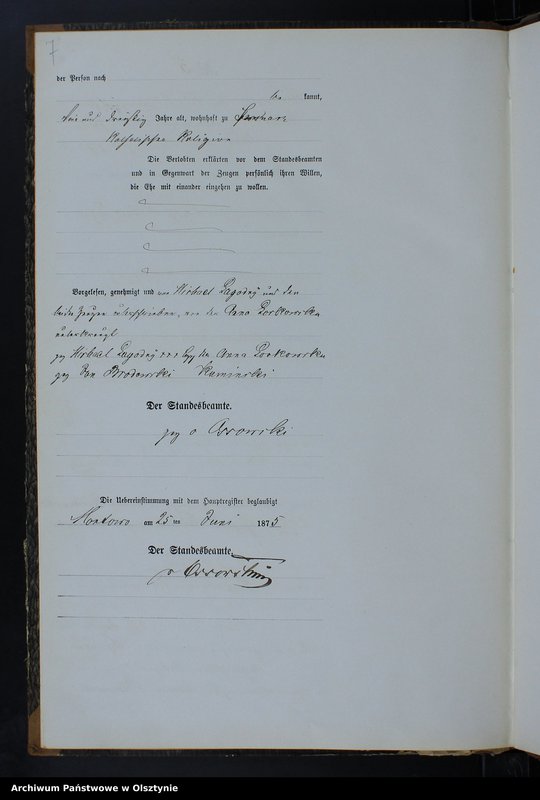 7
der Person nach
be kannt,
drei und dreißig Jahre alt, wohnhaft zu
katholischer Religion
Die Verlobten erklärten vor dem Standesbeamten
und in Gegenwart der Zeugen persönlich ihren Willen,
die Ehe mit einander eingehen zu wollen.
Vorgelesen, genehmigt und von Michael Zagodny und den
beiden Zeugen unterschrieben, von der Anna
unterkreuzt
gez Michael Zagodny +++ der Anna
gez Jan Brodowski Kaminski
Der Standesbeamte.
gez v Ossowski
Die Uebereinstimmung mit dem Hauptregister beglaubigt
am 25 ten Juni 1875
Der Standesbeamte.
v Ossowski
Archiwum Państwowe w Olsztynie